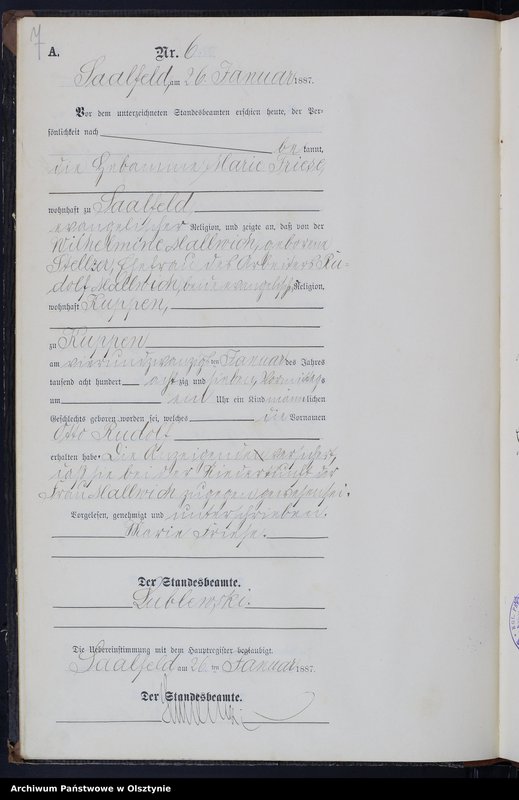 7
A.
Nr. 6
Saalfeld, am 26. Januar 1887.
Vor dem unterzeichneten Standesbeamten erschien heute, der Per-
sönlichkeit nach
be kannt,
die Hebamme Marie Friese,
wohnhaft zu Saalfeld,
evangelischer Religion, und zeigte an, daß von der
Wilhelmine Mallwich, geborene
Stellza, Ehefrau des Arbeiters Ru-
dolf Mallwich, beide evangelisch Religion,
wohnhaft Kuppen,
zu Kuppen
am vierundzwanzigsten Januar des Jahres
tausend acht hundert acht zig und sieben, Vormittags
um ein Uhr ein Kind männlichen
Geschlechts geboren worden sei, welches die Vornamen
Otto Rudolf
erhalten habe. Die Anzeigende versichert,
daß sie bei der Niederkunft der
Frau Mallwich zugegen gewesen sei.
Vorgelesen, genehmigt und unterschrieben.
Marie Friese.
Der Standesbeamte.
Dublewski.
Die Uebereinstimmung mit dem Hauptregister beglaubigt.
Saalfeld am 26. ten Januar 1887.
Der Standesbeamte.
Archiwum Państwowe w Olsztynie